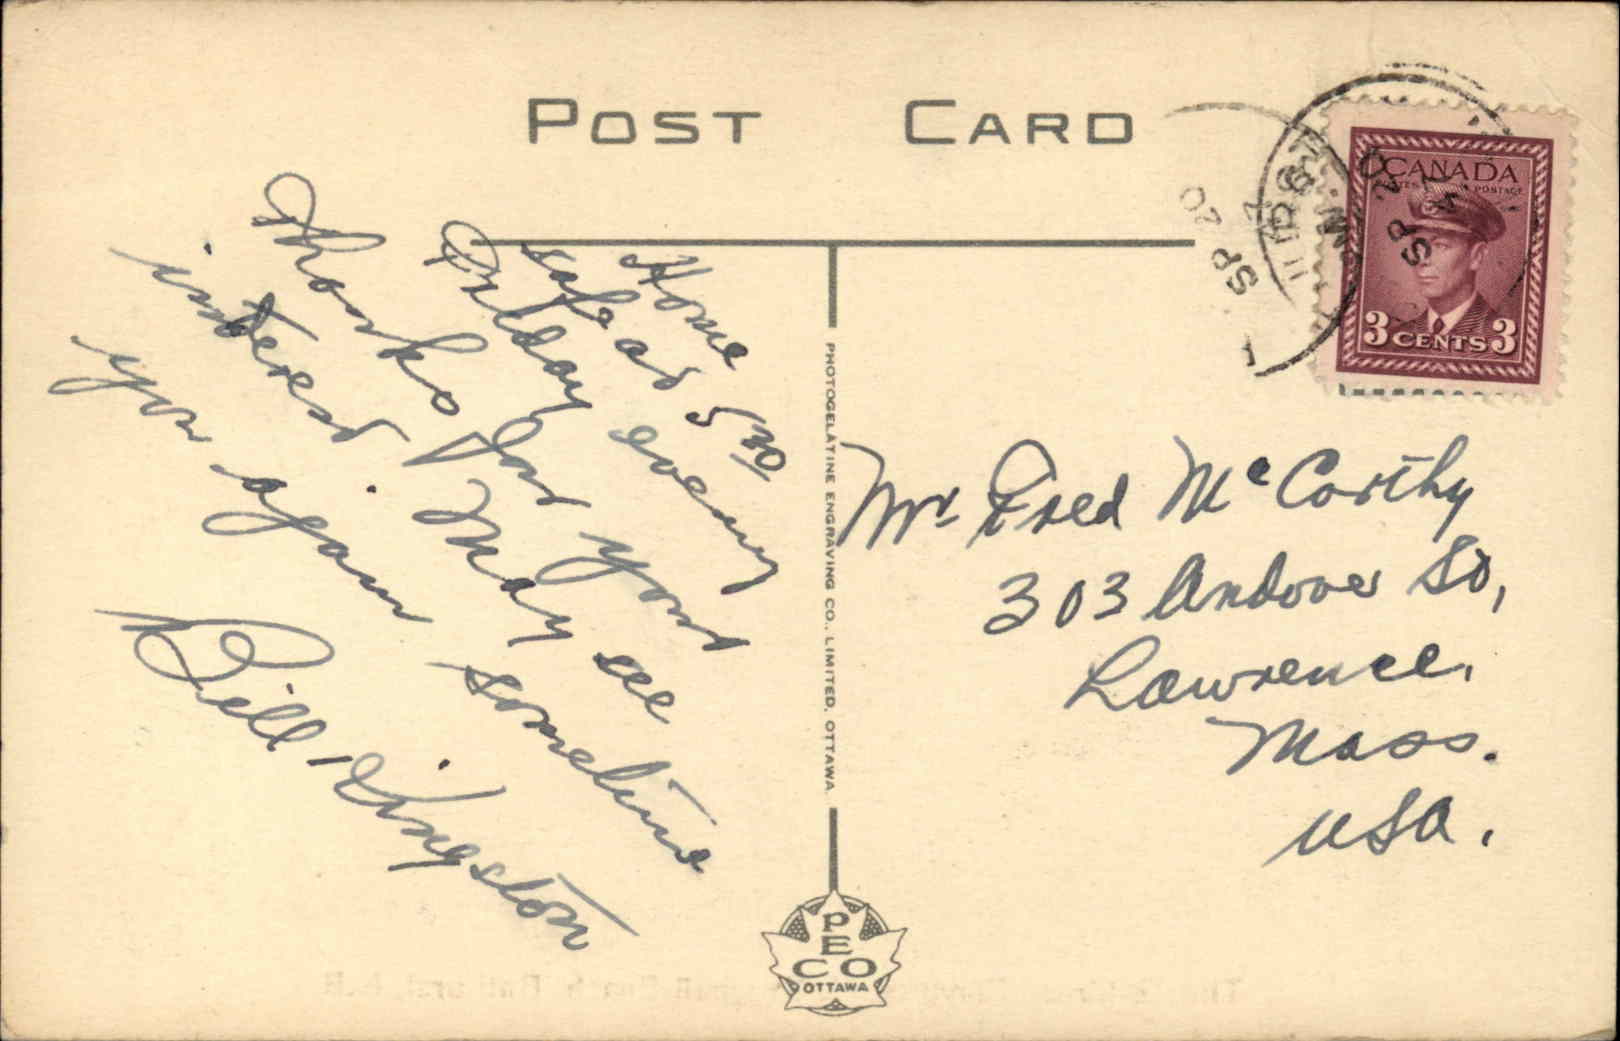 POST CARD
CANADA
POSTES POSTAGE
3 CENTS 3
SP 20
SP
Home
safe at 5 PM
Friday evening
Thanks for your
interest. May see
you again sometime
Bill Kingston
Mr Fred McCarthy
303 Andover St,
Lawrence,
Mass.
USA.
PHOTOGELATINE ENGRAVING CO., LIMITED, OTTAWA
PECO
OTTAWA